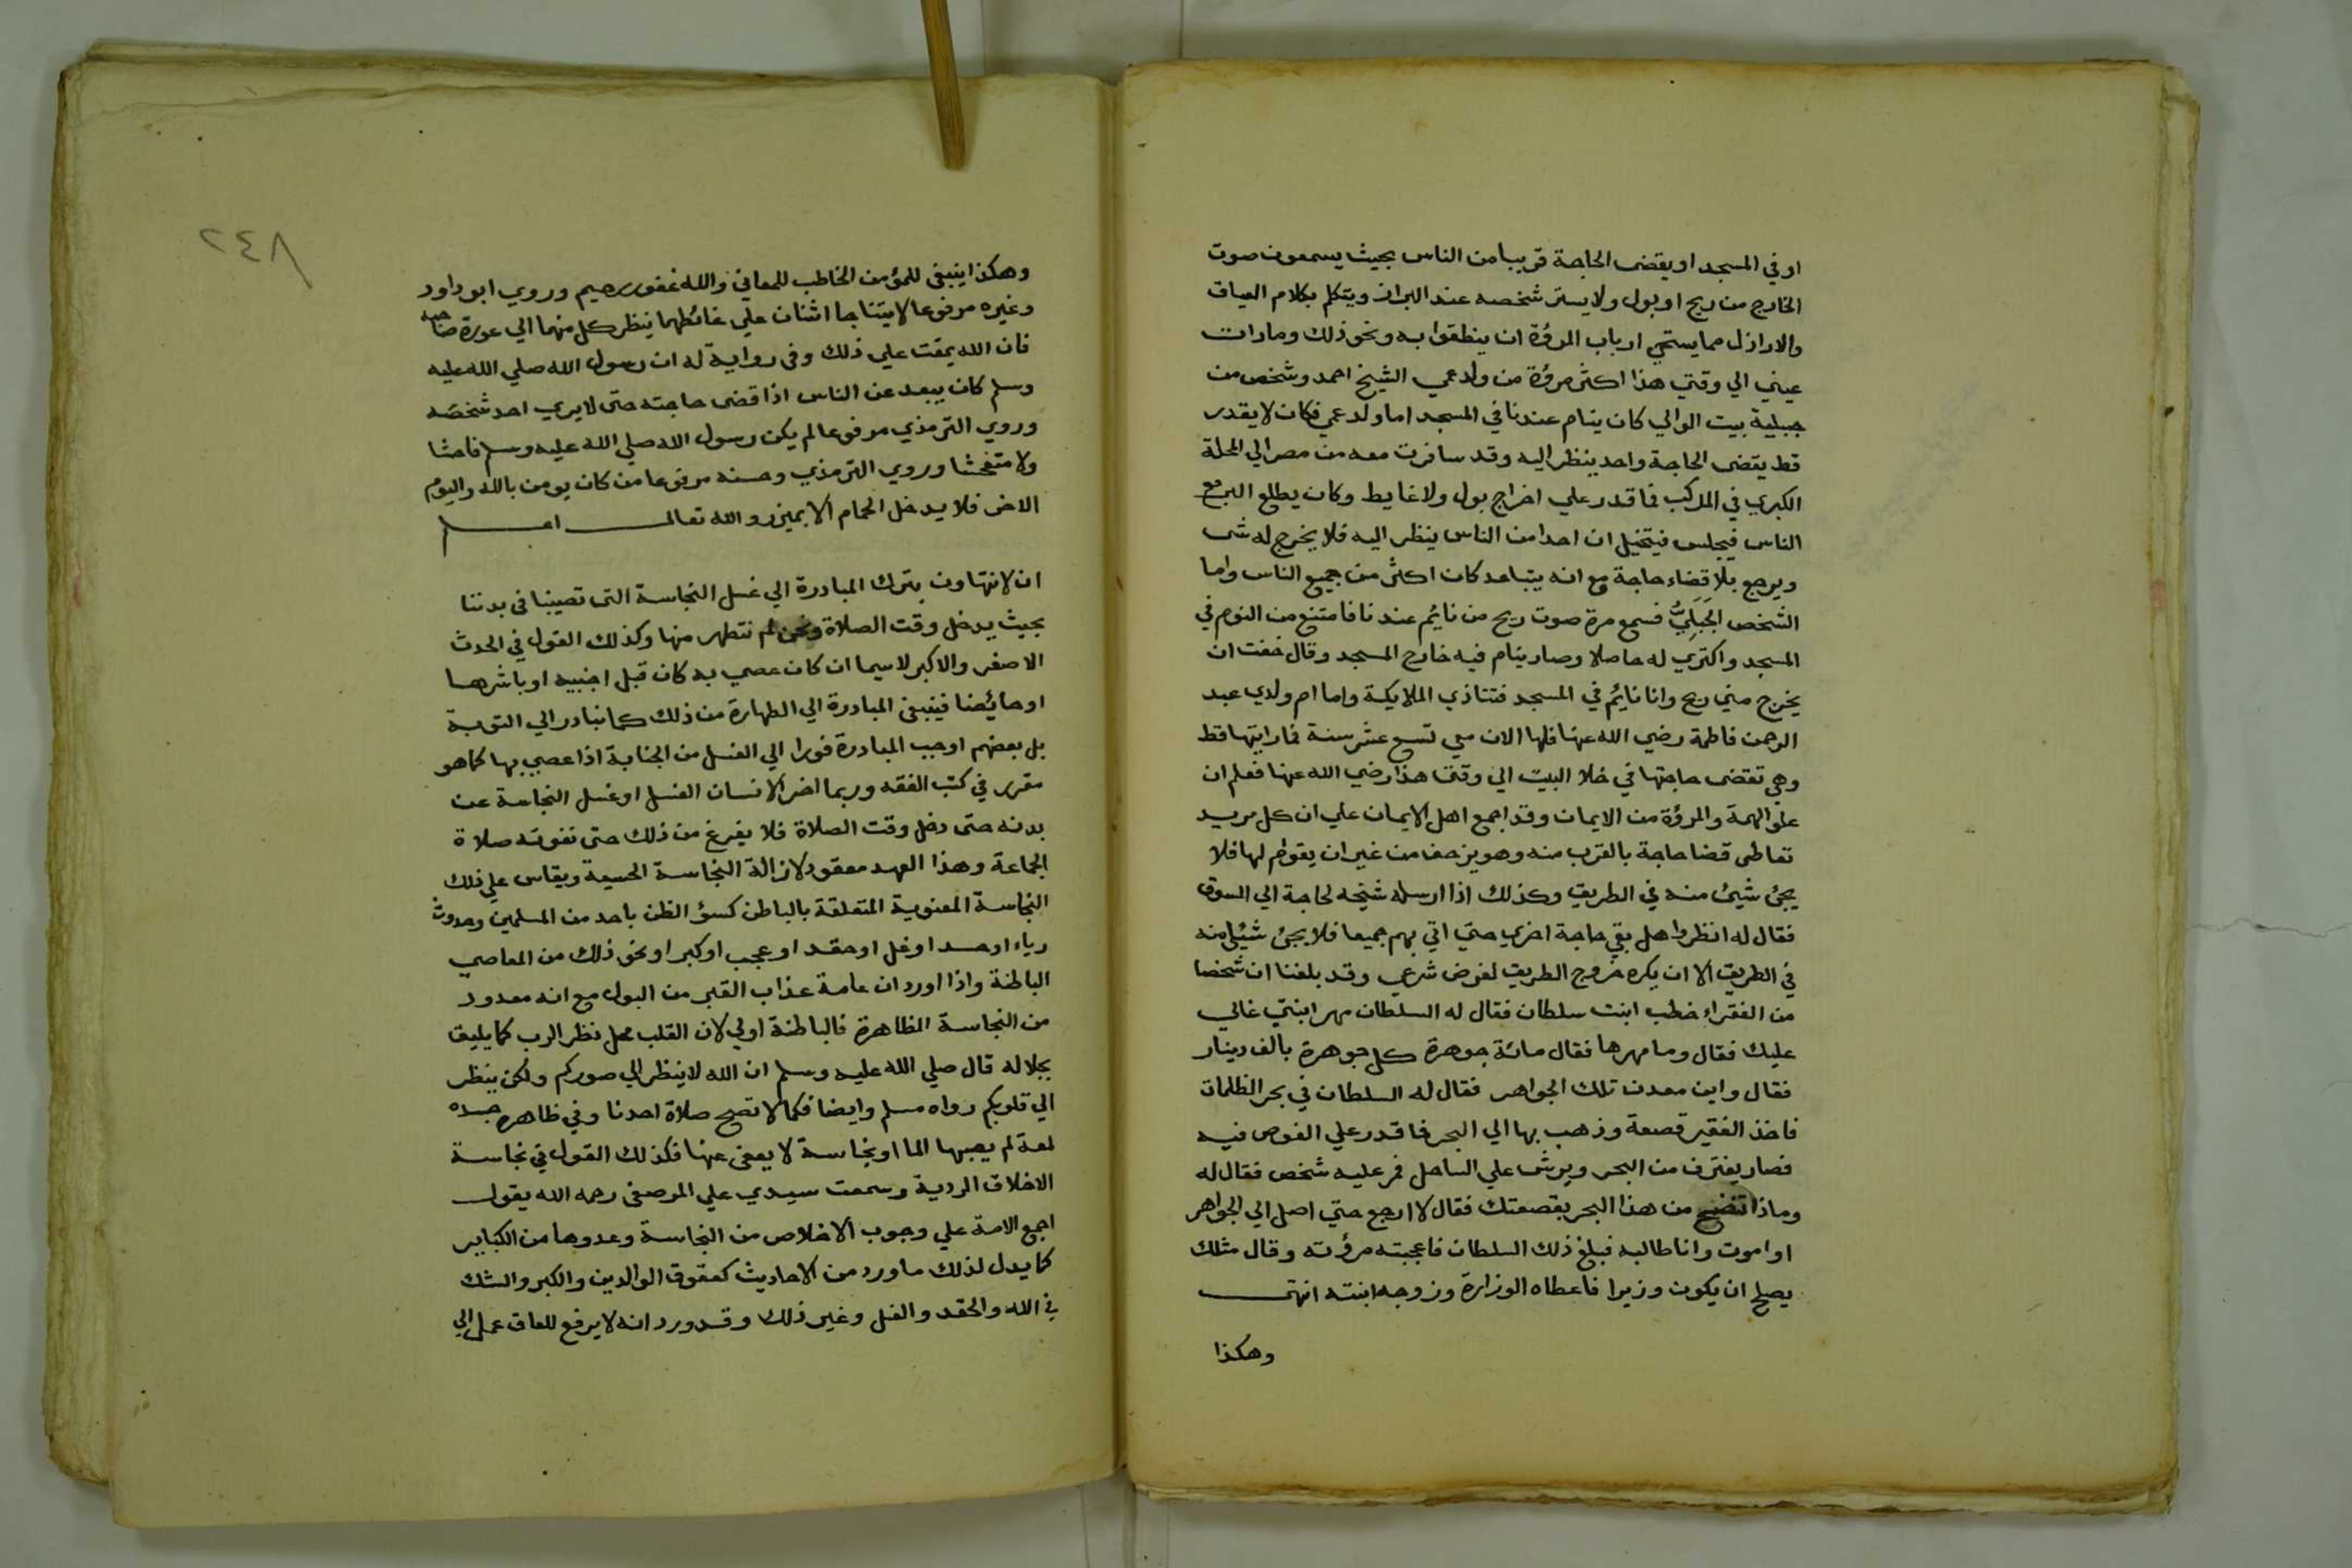 او في المسجد او يقضى الحاجة قريبا من الناس بحيث يسمعون صوت
الخارج من ريح او بول ولا يستر شخصه عند البراز ويتكلم بكلام العياق
والاراذل مما يستحي ارباب المرؤة ان ينطقوا به ونحو ذلك وما رات
عيني الي وقتي هذا اكثر مرؤة من ولد عمي الشيخ احمد وشخص من
جبلية بيت الوالي كان ينام عندنا في المسجد اما ولد عمي فكان لا يقدر
قط يقضى الحاجة واحد ينظر اليه وقد سافرت معه من مصر الي المحلة
الكبري في المركب فما قدر علي اخراج بول ولا غايط وكان يطلع البر مع
الناس فيجلس فيتخيل ان احدا من الناس ينظر اليه فلا يخرج له شى
ويرجع بلا قضاء حاجة مع انه يتباعد كان اكثر من جميع الناس واما
الشخص الجَبَلِيُّ فسمع مرة صوت ريح من نائم عندنا فامتنع من النوم في
المسجد واكتري له حاصلا وصار ينام فيه خارج المسجد وقال خفت ان
يخرج مني ريح وانا نائم في المسجد فتتاذي الملايكة واما ام ولدي عبد
الرحمن فاطمة رضي الله عنها فلها الان معي تسع عشر سنة فما رايتها قط
وهي تقضى حاجتها في خلا البيت الي وقتى هذا رضي الله عنها فعلم ان
علو الهمة والمرؤة من الايمان وقد اجمع اهل الايمان علي ان كل مريد
تعاطى قضا حاجة بالقرب منه وهو يزحف من غير ان يقوم لها فلا
يجئ شيئ منه في الطريق وكذلك اذا ارسله شيخه لحاجة الي السوق
فقال له انظروا هل بقي حاجة اخري حتي اتي بهم جميعا فلا يجئ شئ منه
في الطريق الا ان يكره خروج الطريق لغرض شرعي وقد بلغنا ان شخصا
من الفقراء خطب ابنت سلطان فقال له السلطان مهر ابنتي غالي
عليك فقال وما مهرها فقال مائة جوهرة كل جوهرة بالف دينار
فقال واين معدن تلك الجواهر فقال له السلطان في بحر الظلمات
فاخذ الفقير قصعة وذهب بها الي البحر فما قدر علي الغوص فيه
فصار يغترف من البحر ويرش علي الساحل فمر عليه شخص فقال له
وماذا تنضح من هذا البحر بقصعتك فقال لا ارجع حتي اصل الي الجواهر
او اموت وانا طالبه فبلغ ذلك السلطان فاعجبته مرؤته وقال مثلك
يصلح ان يكون وزيرا فاعطاه الوزارة وزوجه ابنته انتهى
وهكذا
٢٤٨
وهكذا ينبغى للمؤمن الخاطب للمعاني والله غفور رحيم وروي ابو داود
وغيره مرفوعا لا يتناجا اثنان علي غائطهما ينظر كل منهما الي عورة صاحبه
فان الله يمقت علي ذلك وفى رواية له ان رسول الله صلي الله عليه
وسلم كان يبعد عن الناس اذا قضى حاجته حتى لا يري احد شخصه
وروي الترمذي مرفوعا لم يكن رسول الله صلي الله عليه وسلم فاحشا
ولا متفحشا وروي الترمذي وحسنه مرفوعا من كان يومن بالله واليوم
الاخر فلا يدخل الحمام الا بميزر والله تعالى اعلم
ان لا نتهاون بترك المبادرة الي غسل النجاسة التى تصيبنا فى بدننا
بحيث يدخل وقت الصلاة ونحن لم نتطهر منها وكذلك القول في الحدث
الاصغر والاكبر لا سيما ان كان عصي به كان قبل اجنبيه او باشرها
او حائضا فينبغى المبادرة الي الطهارة من ذلك كما نبادر الي التوبة
بل بعضهم اوجب المبادرة فورا الي الغسل من الجنابة اذا عصي بها كما هو
مقرر في كتب الفقه وربما اخر الانسان الغسل او غسل النجاسة عن
بدنه حتى دخل وقت الصلاة فلا يفرغ من ذلك حتى تفوته صلاة
الجماعة وهذا العهد معقود لازالة النجاسة الحسية ويقاس علي ذلك
النجاسة المعنوية المتعلقة بالباطن كسؤ الظن باحد من المسلمين وحدوث
رياء او حسد او غل او حقد او عجب او كبر او نحو ذلك من المعاصي
الباطنة واذا اورد ان عامة عذاب القبر من البول مع انه معدود
من النجاسة الظاهرة فالباطنة اولي لان القلب محل نظر الرب كما يليق
بجلاله قال صلي الله عليه وسلم ان الله لا ينظر الي صوركم ولكن ينظر
الي قلوبكم رواه مسلم وايضا فكما لا تصح صلاة احدنا وفي ظاهر جسده
لمعة لم يصبها الما او نجاسة لا يعفى عنها فكذلك القول في نجاسة
الاخلاق الردية وسمعت سيدي علي المرصفى رحمه الله يقول
اجمع الامة علي وجوب الاخلاص من النجاسة وعدوها من الكباير
كما يدل لذلك ما ورد من الاحاديث كعقوق الوالدين والكبر والشك
في الله والحقد والغل وغير ذلك وقد ورد انه لا يرفع للعاق عمل الي